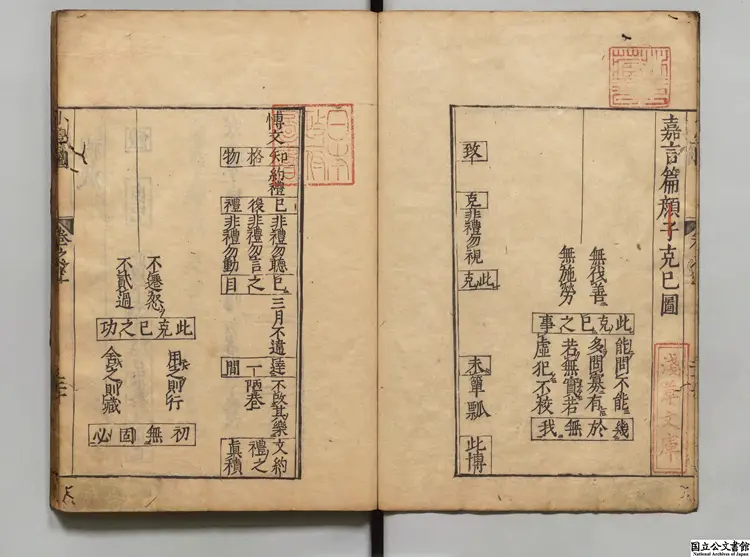 嘉言篇顏子克己圖
無伐善
無施勞
此克己之事
能問不能
多問寡有
若無實若
虛犯不校
幾於無我
致
克非禮勿視
此克
未簞瓢
此博
博文知約禮己非禮勿聽己三月不違
不改其樂文約
格後非禮勿言之
陋巷禮之
物禮非禮勿動目
間
真積
不遷怒
不貳過
此克己之功
用之則行
舍之則藏
初無固必
淺草文庫
日本政府圖書
国立公文書館
National Archives of Japan